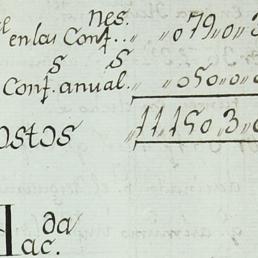 en las Conf.nes. .. ,, ,, 079,, 0,,
s Conf.s anual.s ,, ,, 050,, 0,,
ostos 11,, 150,, 3,, 0
Hac.da